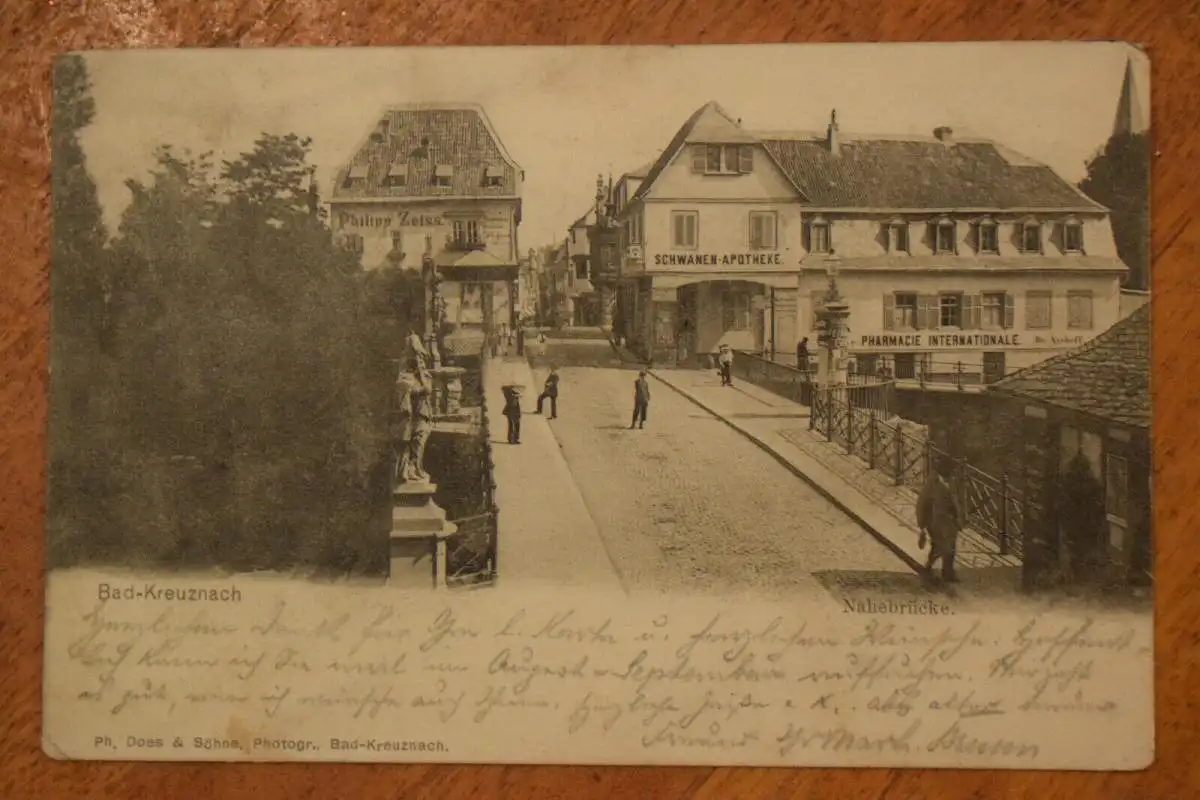 Philipp Zeiss.
SCHWANEN-APOTHEKE.
PHARMACIE INTERNATIONALE.
Bad-Kreuznach
Nahebrücke.
Herzlichen Dank für Ihre l. Karte u. herzlichen Wünsche. Hoffent-
lich kann ich Sie mal im August - September aufsuchen. Mir geht
es gut, was ich wünsche auch Ihnen. Herzliche Grüße
Freund
Ph. Does & Söhne, Photogr., Bad-Kreuznach.